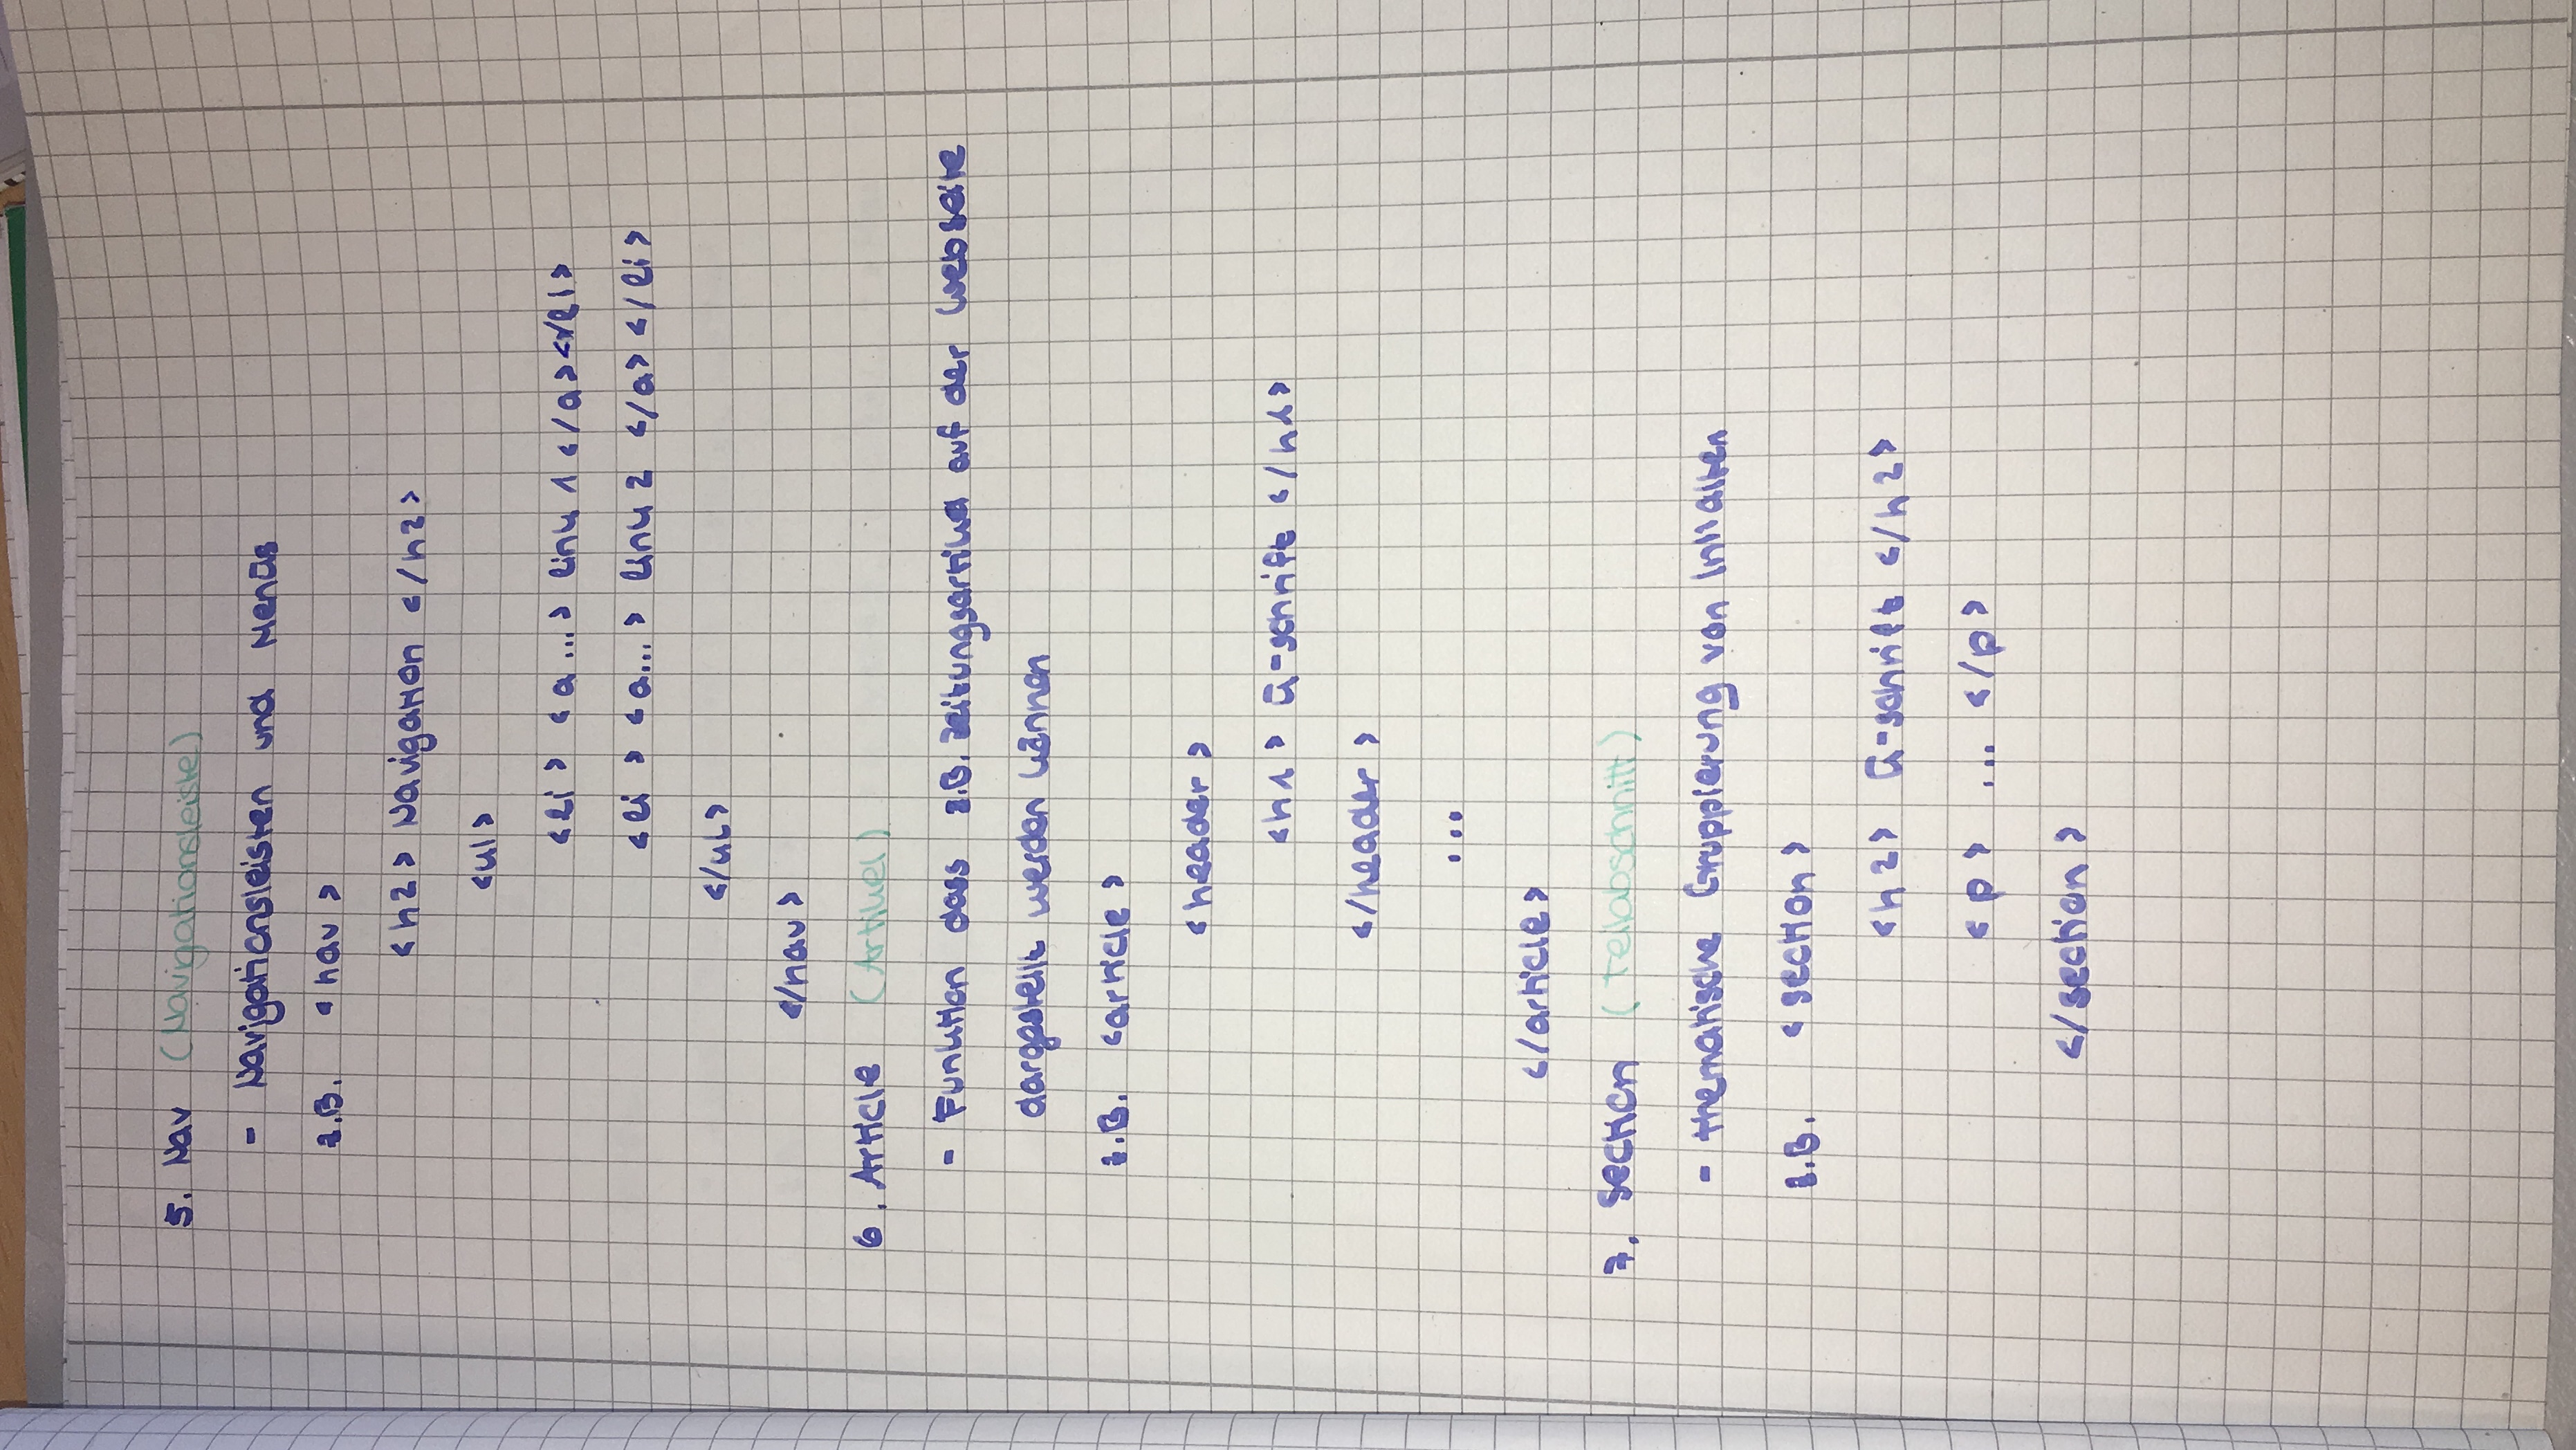 5. Nav (Navigationsleiste)
- Navigationsleisten und Menüs
z.B. <nav>
<h2> Navigation </h2>
<ul>
<li> <a...> link 1 </a></li>
<li> <a...> link 2 </a> </li>
</ul>
</nav>
6. Article (Artikel)
- Funktion dass z.B. Zeitungsartikel auf der Webseite
dargestellt werden können
z.B. <article>
<header>
<h1> Ü-schrift </h1>
</header>
...
</article>
7. Section (Teilabschnitt)
- thematische Gruppierung von Inhalten
z.B. <section>
<h2> Ü-schrift </h2>
<p> ... </p>
</section>